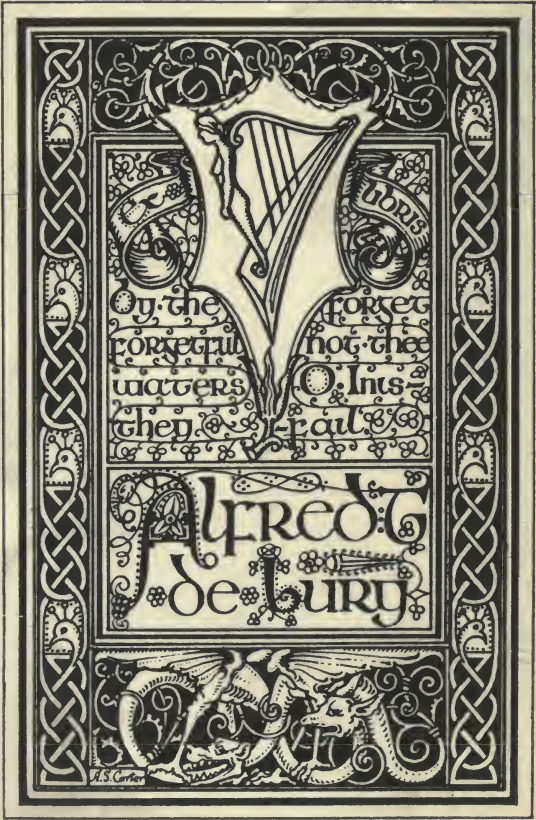 ex
libris
By·the
forgetful
waters
they
forget
not·thee
O·Inis-
-fail
Alfred·T
de·Lury
A.S. Carter